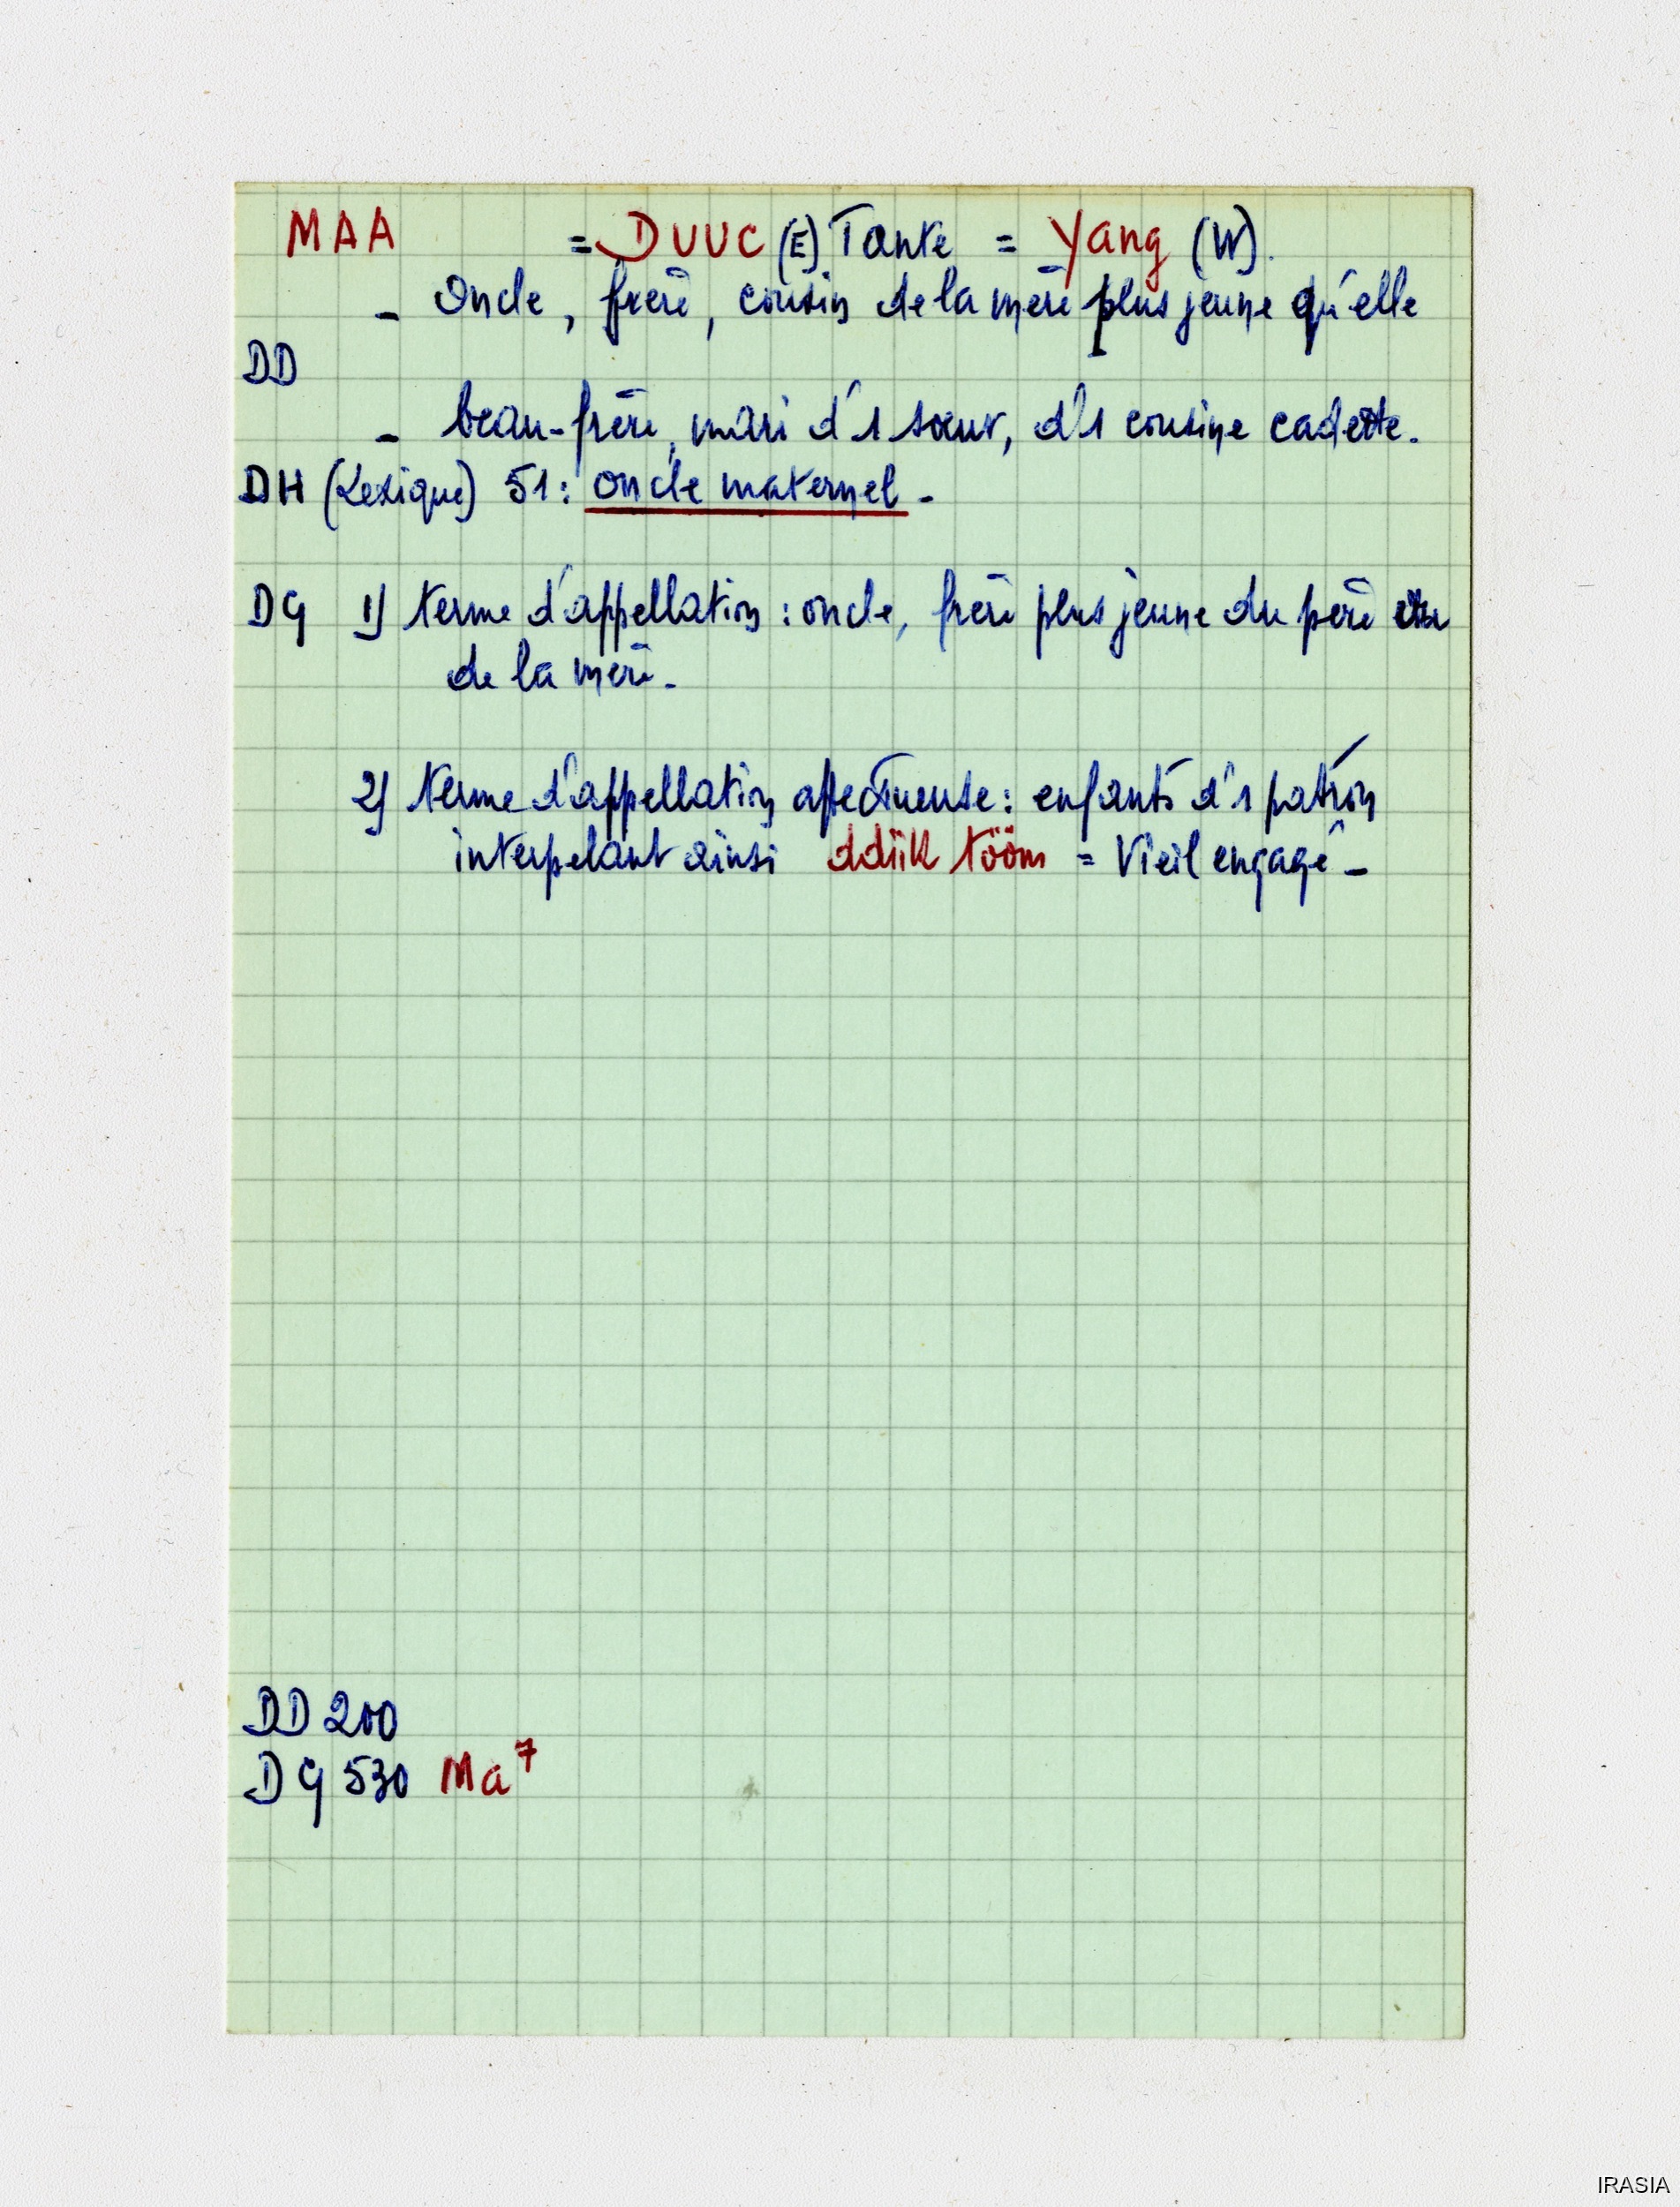 MAA = DUUC (E) Tante = Yang (W).
- Oncle, frère, cousin de la mère plus jeune qu'elle
DD
- beau-frère, mari d'1 sœur, d'1 cousine cadette.
DH (Lexique) 51: oncle maternel -
DG 1) terme d'appellation : oncle, frère plus jeune du père ou
de la mère -
2) terme d'appellation affectueuse : enfants d'1 patron
interpelant ainsi ddiik tööm = Vieil engagé -
DD 200
DG 530 Ma⁷
IRASIA